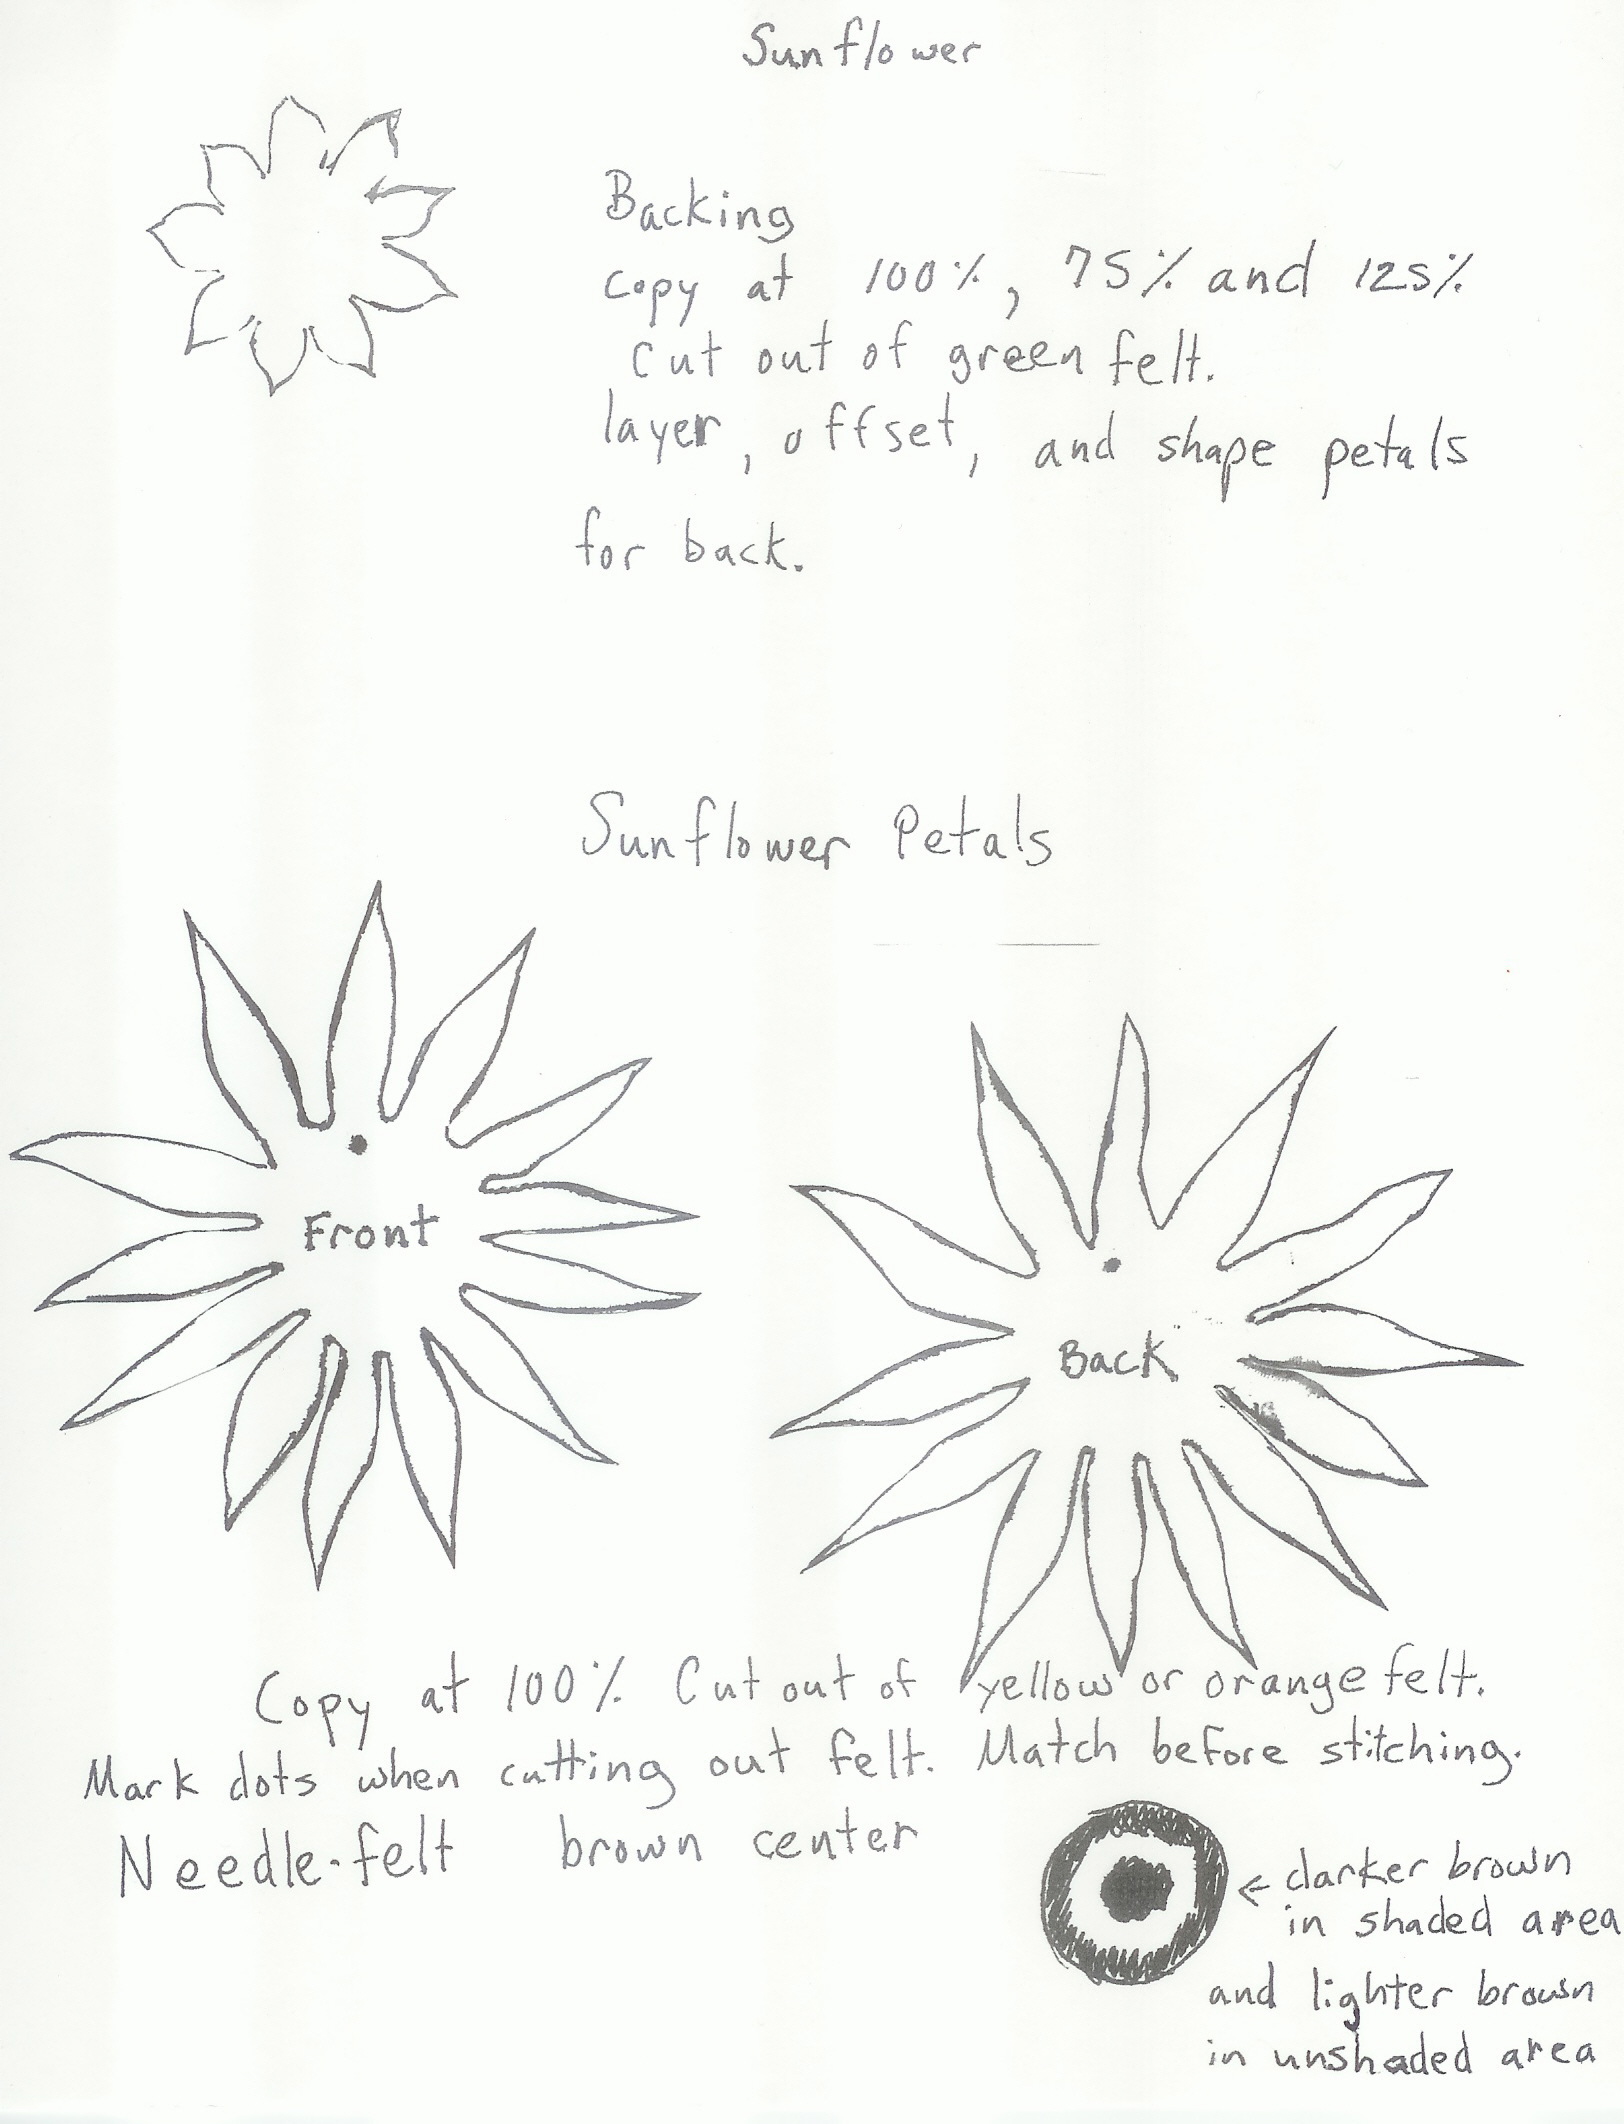 Sunflower
Backing
copy at 100%, 75% and 125%
Cut out of green felt.
layer, offset, and shape petals
for back.
Sunflower Petals
Front
Back
Copy at 100% Cut out of yellow or orange felt.
Mark dots when cutting out felt. Match before stitching.
Needle-felt brown center
← darker brown
in shaded area
and lighter brown
in unshaded area